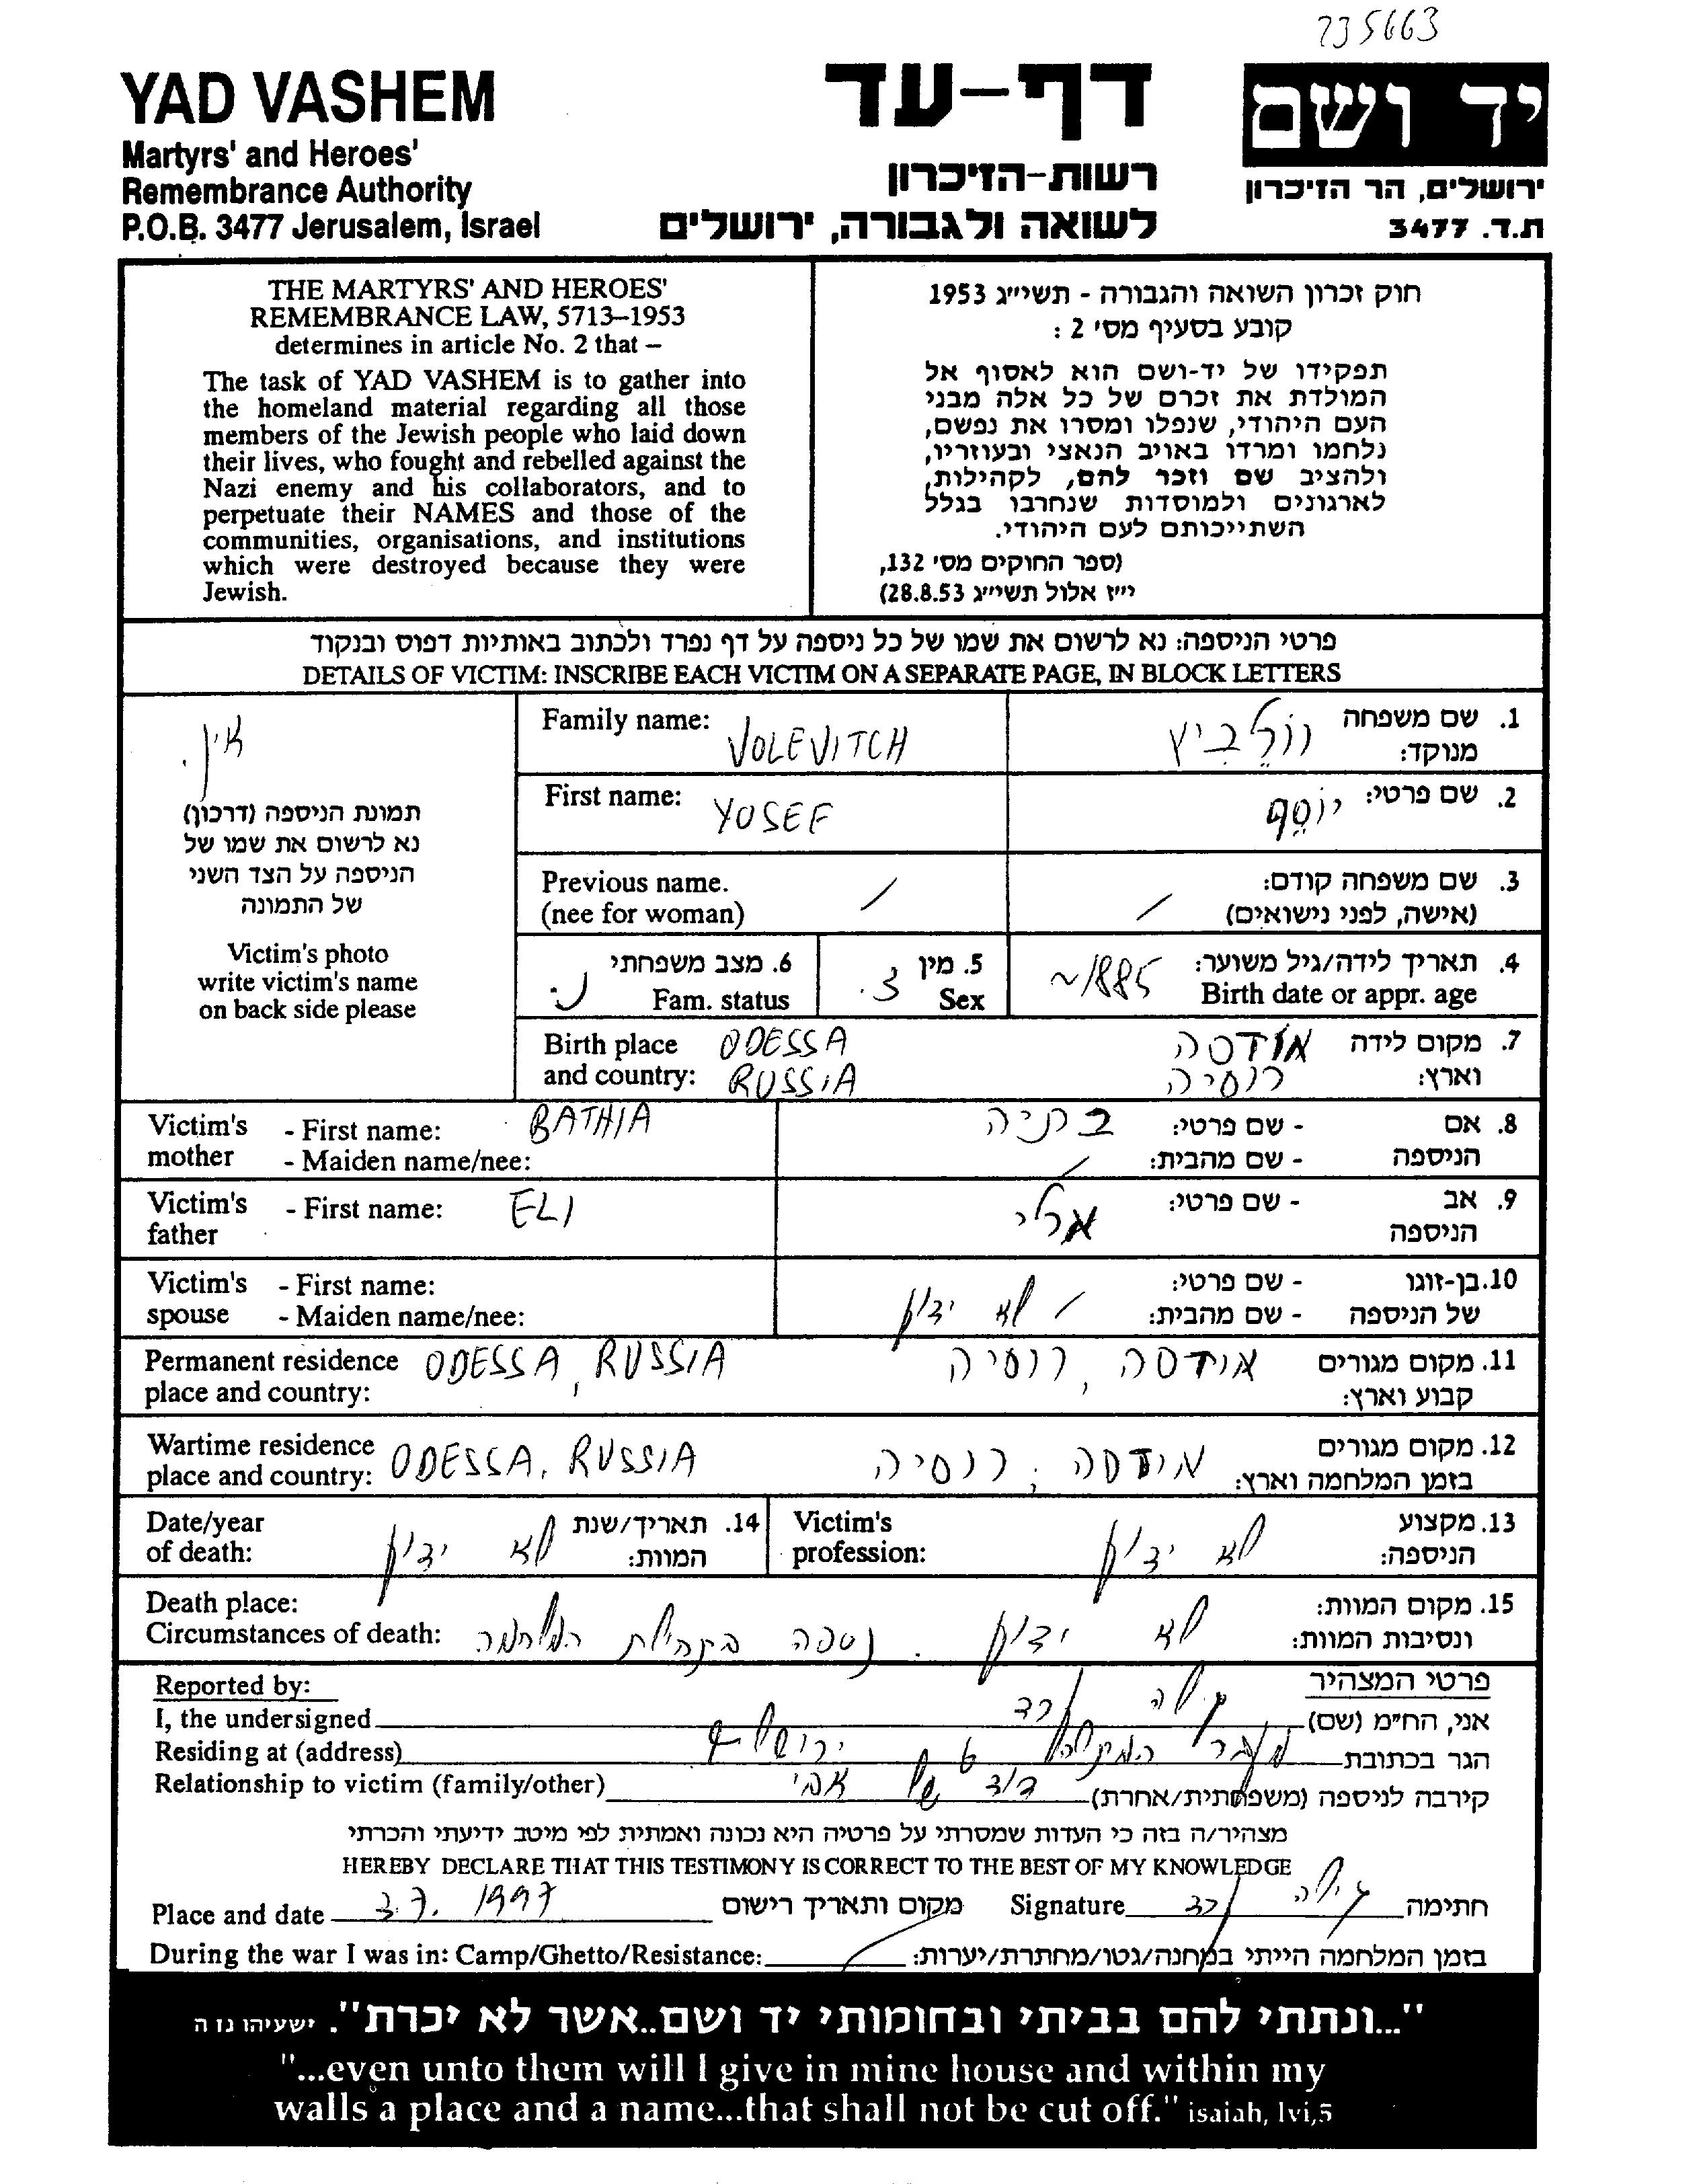 235663
YAD VASHEM
Martyrs' and Heroes'
Remembrance Authority
P.O.B. 3477 Jerusalem, Israel
דף-עד
רשות-הזיכרון
לשואה ולגבורה, ירושלים
יד ושם
ירושלים, הר הזיכרון
ת.ד. 3477
THE MARTYRS' AND HEROES'
REMEMBRANCE LAW, 5713–1953
determines in article No. 2 that –
The task of YAD VASHEM is to gather into
the homeland material regarding all those
members of the Jewish people who laid down
their lives, who fought and rebelled against the
Nazi enemy and his collaborators, and to
perpetuate their NAMES and those of the
communities, organisations, and institutions
which were destroyed because they were
Jewish.
חוק זכרון השואה והגבורה - תשי"ג 1953
קובע בסעיף מס' 2 :
תפקידו של יד-ושם הוא לאסוף אל
המולדת את זכרם של כל אלה מבני
העם היהודי, שנפלו ומסרו את נפשם,
נלחמו ומרדו באויב הנאצי ובעוזריו,
ולהציב שם וזכר להם, לקהילות,
לארגונים ולמוסדות שנחרבו בגלל
השתייכותם לעם היהודי.
(ספר החוקים מס' 132,
י"ז אלול תשי"ג 28.8.53)
פרטי הניספה: נא לרשום את שמו של כל ניספה על דף נפרד ולכתוב באותיות דפוס ובנקוד
DETAILS OF VICTIM: INSCRIBE EACH VICTIM ON A SEPARATE PAGE, IN BLOCK LETTERS
אין.
תמונת הניספה (דרכון)
נא לרשום את שמו של
הניספה על הצד השני
של התמונה
Victim's photo
write victim's name
on back side please
Family name: VOLEVITCH
1. שם משפחה מנוקד: וֹולֵבִיץ
First name: YOSEF
2. שם פרטי: יוֹסֵף
Previous name. /
(nee for woman)
3. שם משפחה קודם: /
(אישה, לפני נישואים)
6. מצב משפחתי נ.
Fam. status
5. מין ז.
Sex
4. תאריך לידה/גיל משוער: ~1885
Birth date or appr. age
Birth place ODESSA
and country: RUSSIA
7. מקום לידה אודסה
וארץ: רוסיה
Victim's mother - First name: BATHIA
- Maiden name/nee:
8. אם הניספה - שם פרטי: בתיה
- שם מהבית: /
Victim's father - First name: ELI
9. אב הניספה - שם פרטי: אלי
Victim's spouse - First name:
- Maiden name/nee:
10. בן-זוגו של הניספה - שם פרטי:
- שם מהבית: / לא ידוע
Permanent residence place and country: ODESSA, RUSSIA
11. מקום מגורים קבוע וארץ: אודסה, רוסיה
Wartime residence place and country: ODESSA, RUSSIA
12. מקום מגורים בזמן המלחמה וארץ: אודסה, רוסיה
Date/year of death:
14. תאריך/שנת המוות: לא ידוע
Victim's profession:
13. מקצוע הניספה: לא ידוע
Death place:
Circumstances of death:
15. מקום המוות:
ונסיבות המוות: לא ידוע. נספה בתחילת המלחמה
Reported by:
פרטי המצהיר
I, the undersigned
אני, הח"מ (שם)
Residing at (address)
הגר בכתובת 6 ירושלים
Relationship to victim (family/other)
קירבה לניספה (משפחתית/אחרת) דוד של אמי
מצהיר/ה בזה כי העדות שמסרתי על פרטיה היא נכונה ואמתית לפי מיטב ידיעתי והכרתי
HEREBY DECLARE THAT THIS TESTIMONY IS CORRECT TO THE BEST OF MY KNOWLEDGE
Place and date 3.7.1997 מקום ותאריך רישום
Signature חתימה
During the war I was in: Camp/Ghetto/Resistance: / בזמן המלחמה הייתי במחנה/גטו/מחתרת/יערות:
"...ונתתי להם בביתי ובחומותי יד ושם..אשר לא יכרת". ישעיהו נו ה
"...even unto them will I give in mine house and within my
walls a place and a name...that shall not be cut off." isaiah, lvi,5